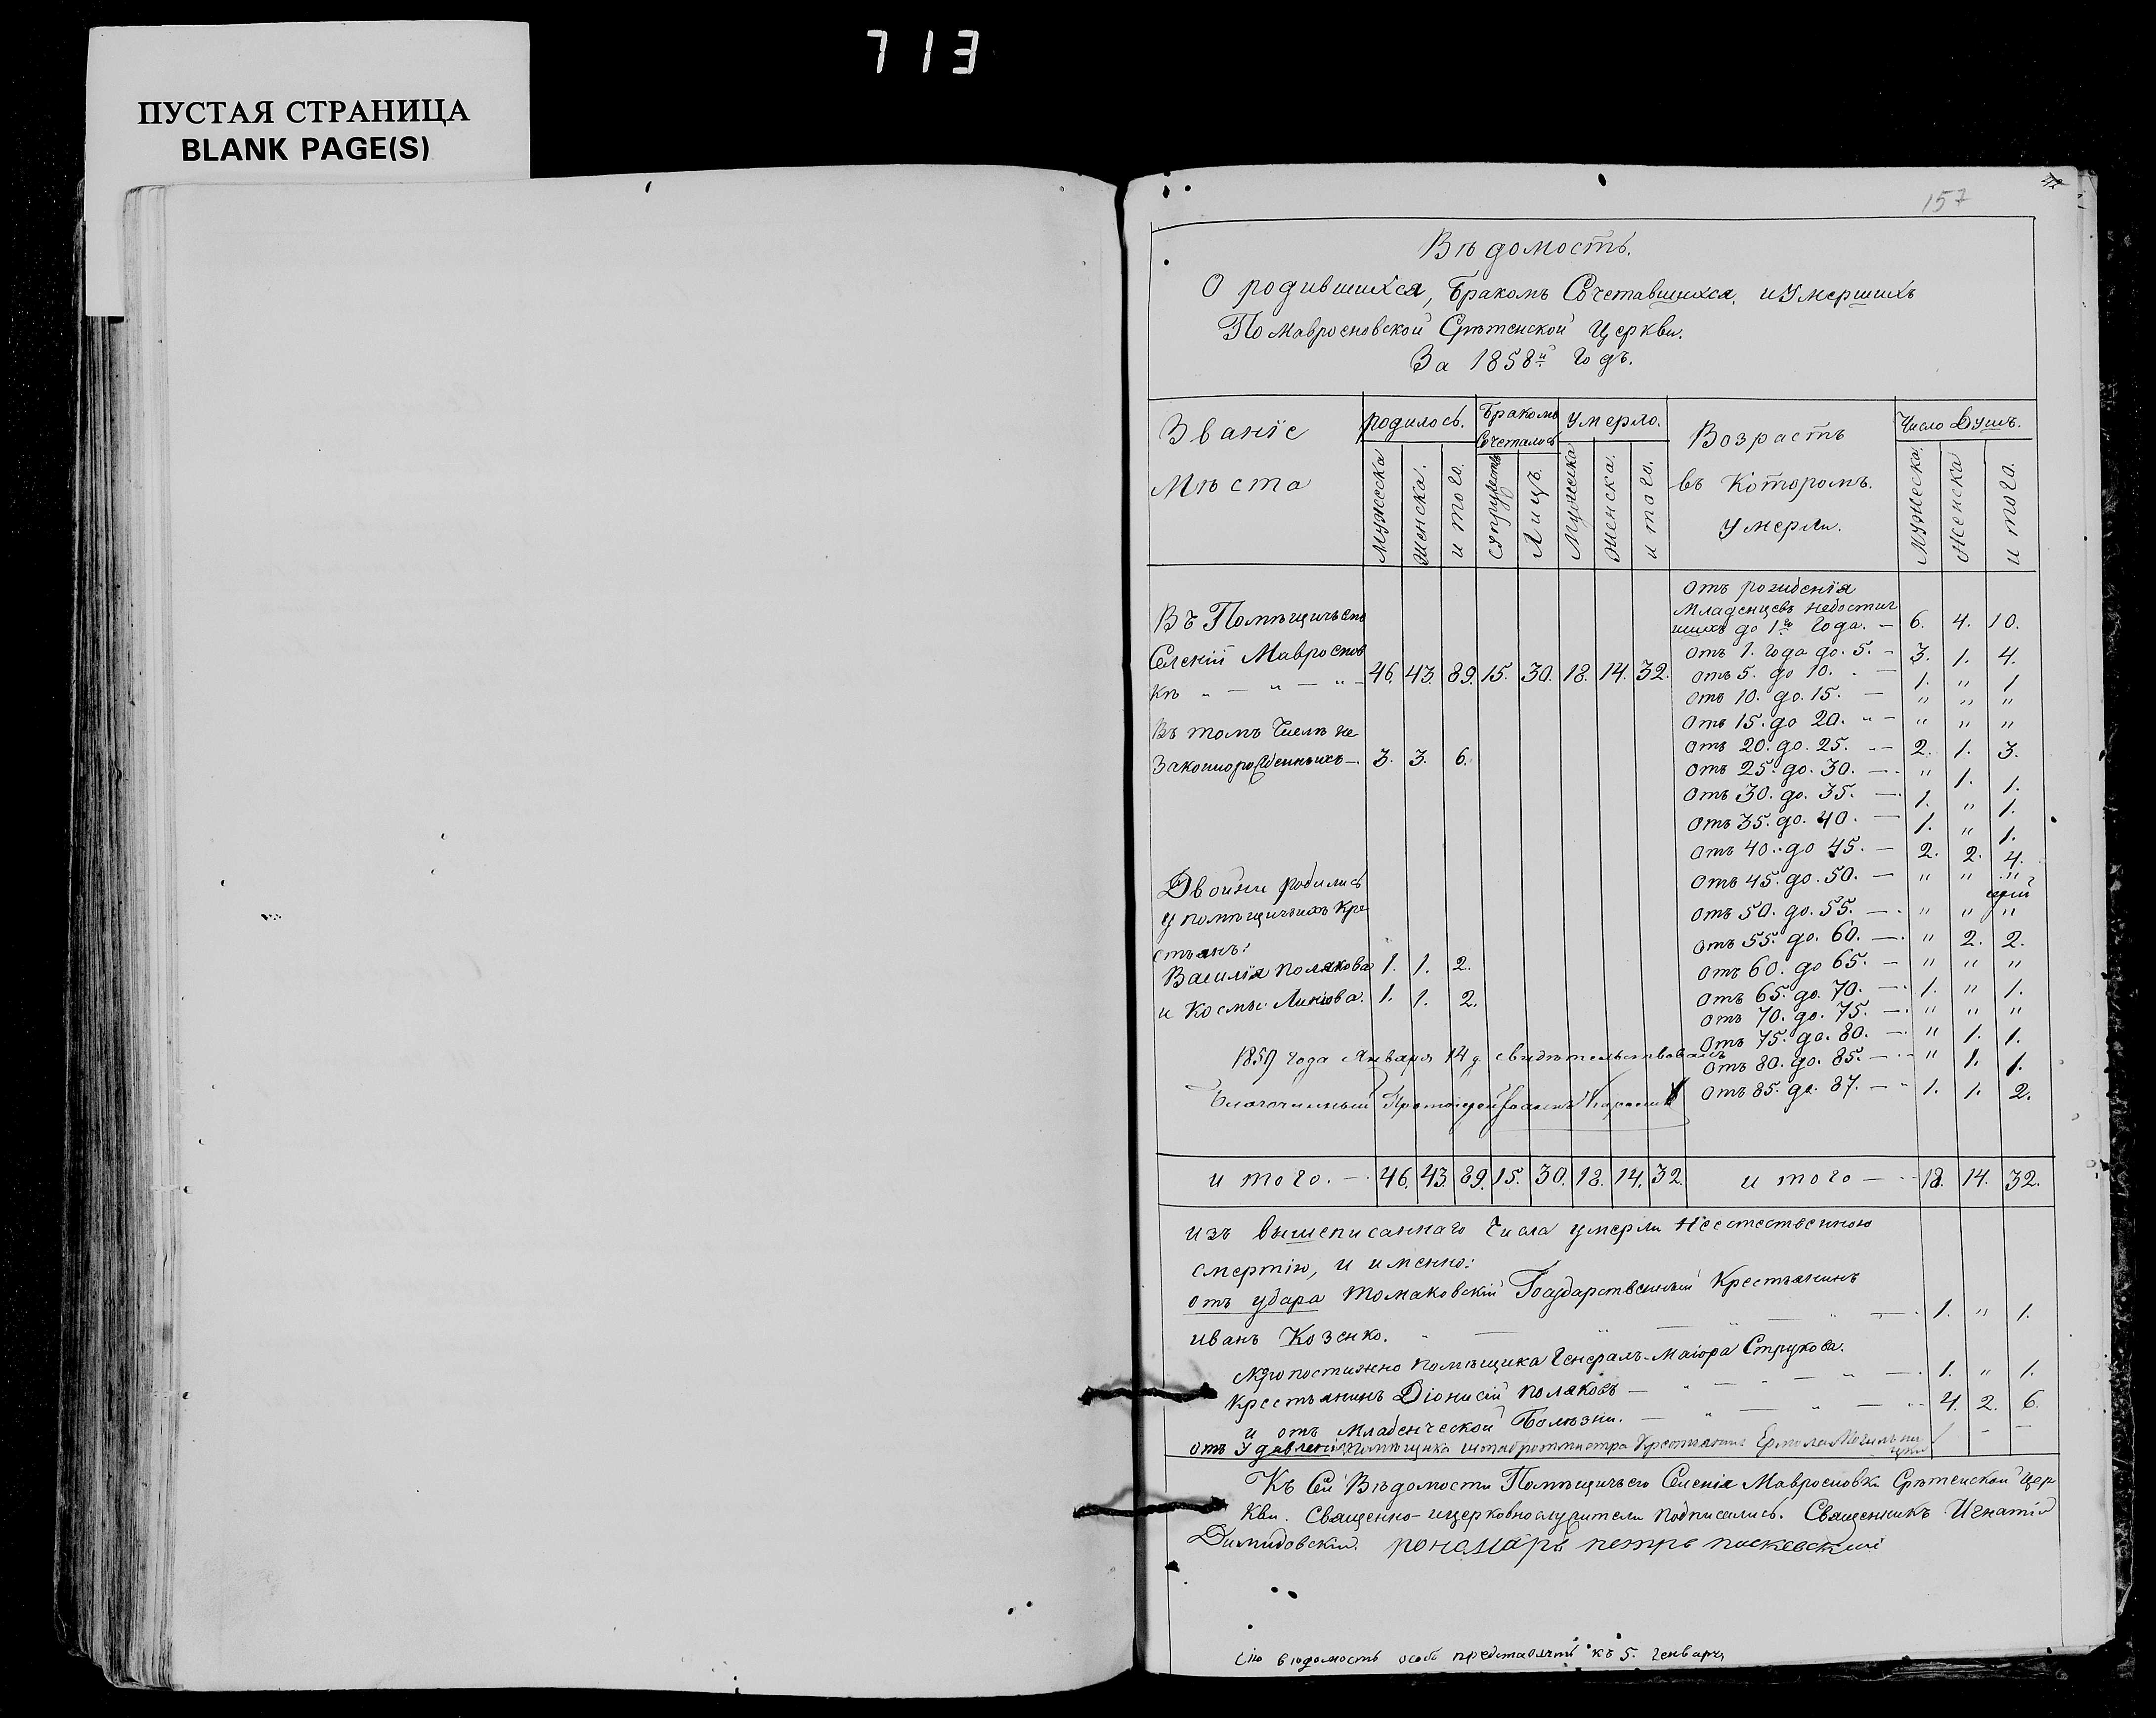 713
ПУСТАЯ СТРАНИЦА
BLANK PAGE(S)
157
Вѣдомость.
О родившихся, бракомъ Сочетавшихся, и Умершихъ
По Мавроеновской Срѣтенской Церкви.
За 1858й годъ.
Званіе Мѣста
родилось.
Мужеска Женска. итого.
Бракомъ Сочеталось
Супружествъ Лицъ.
Умерло.
Мужеска Женска. итого.
Возрастъ въ Которомъ. умерли.
Число Душъ.
Мужеска. Женска итого.
Въ Помѣщичьемъ
Селеніи Мавроенов
кѣ " — " — " — 46. 43. 89. 15. 30. 18. 14. 32.
Въ томъ Числѣ не
Законнорожденныхъ — 3. 3. 6.
Двойни родились
у помѣщичьихъ Кре
стьянъ:
Василія Полякова 1. 1. 2.
и Космы 1. 1. 2.
1859 года Января 14 д. свидѣтельствовалъ
Благочинный Протоіерей Іоаннъ
Отъ рожденія
Младенцевъ недостиг
шихъ до 1го Года. — 6. 4. 10.
Отъ 1. года до. 5. — 3. 1. 4.
Отъ 5. до 10. — 1. " 1
Отъ 10. до. 15. — " " "
Отъ 15. до 20. " — " " "
Отъ 20. до. 25. — 2. 1. 3.
Отъ 25. до. 30. — " 1. 1.
Отъ 30. до. 35. — 1. " 1.
Отъ 35. до. 40. — 1. " 1.
Отъ 40. до 45. — 2. 2. 4.
Отъ 45. до. 50. — " " "
Отъ 50. до. 55. — " " "
Отъ 55. до. 60. — " 2. 2.
Отъ 60. до 65. — " " "
Отъ 65. до. 70. — 1. " 1.
Отъ 70. до. 75. — " " "
Отъ 75. до. 80. — " 1. 1.
Отъ 80. до. 85. — " 1. 1.
Отъ 85. до. 87. — 1. 1. 2.
итого. — 46. 43. 89. 15. 30. 18. 14. 32. итого — 18. 14. 32.
изъ вышеписаннаго Числа умерли Неестественною
смертію, и именно:
отъ удара томаковскій Государственный Крестьянинъ
иванъ Козенко. 1. " 1.
Скоропостижно помѣщика Генералъ-Маіора Струкова.
Крестьянинъ Діонисій Поляковъ — 1. " 1.
и отъ Младенческой Болѣзни. — 4. 2. 6.
отъ Удавленія помѣщика штабротмистра Крестьянинъ
Къ Сей Вѣдомости Помѣщичьего Селенія Мавроеновки Срѣтенской Цер
кви. Священно-ицерковнослужители подписались. Священникъ Игнатій
Димидовскій. пономарь петръ
Сію вѣдомость особо представлять къ 5. генваря